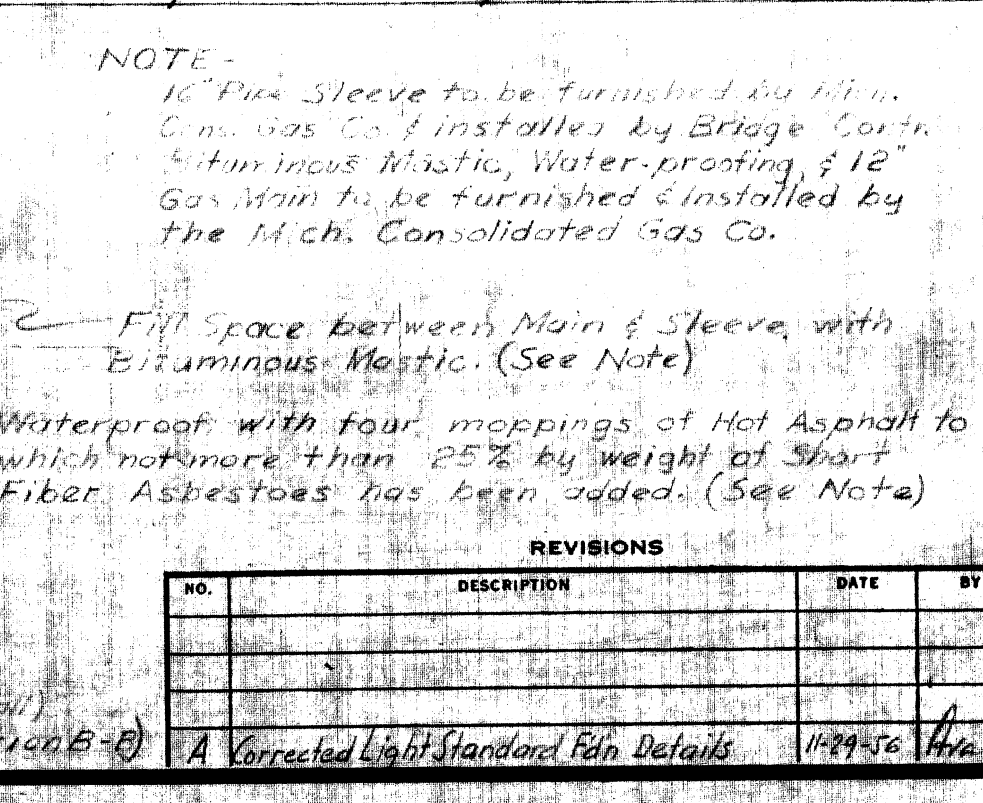 NOTE -
16" Pipe Sleeve to be furnished by Mich.
Cons. Gas Co. & installed by Bridge Contr.
Bituminous Mastic, Water-proofing, & 12"
Gas Main to be furnished & Installed by
the Mich. Consolidated Gas Co.
Fill Space between Main & Sleeve with
Bituminous Mastic. (See Note)
Waterproof with four moppings of Hot Asphalt to
which not more than 25% by weight of Short
Fiber Asbestoes has been added. (See Note)
REVISIONS
NO. DESCRIPTION DATE BY
B-B)
A Corrected Light Standard Fdn Details 11-29-56